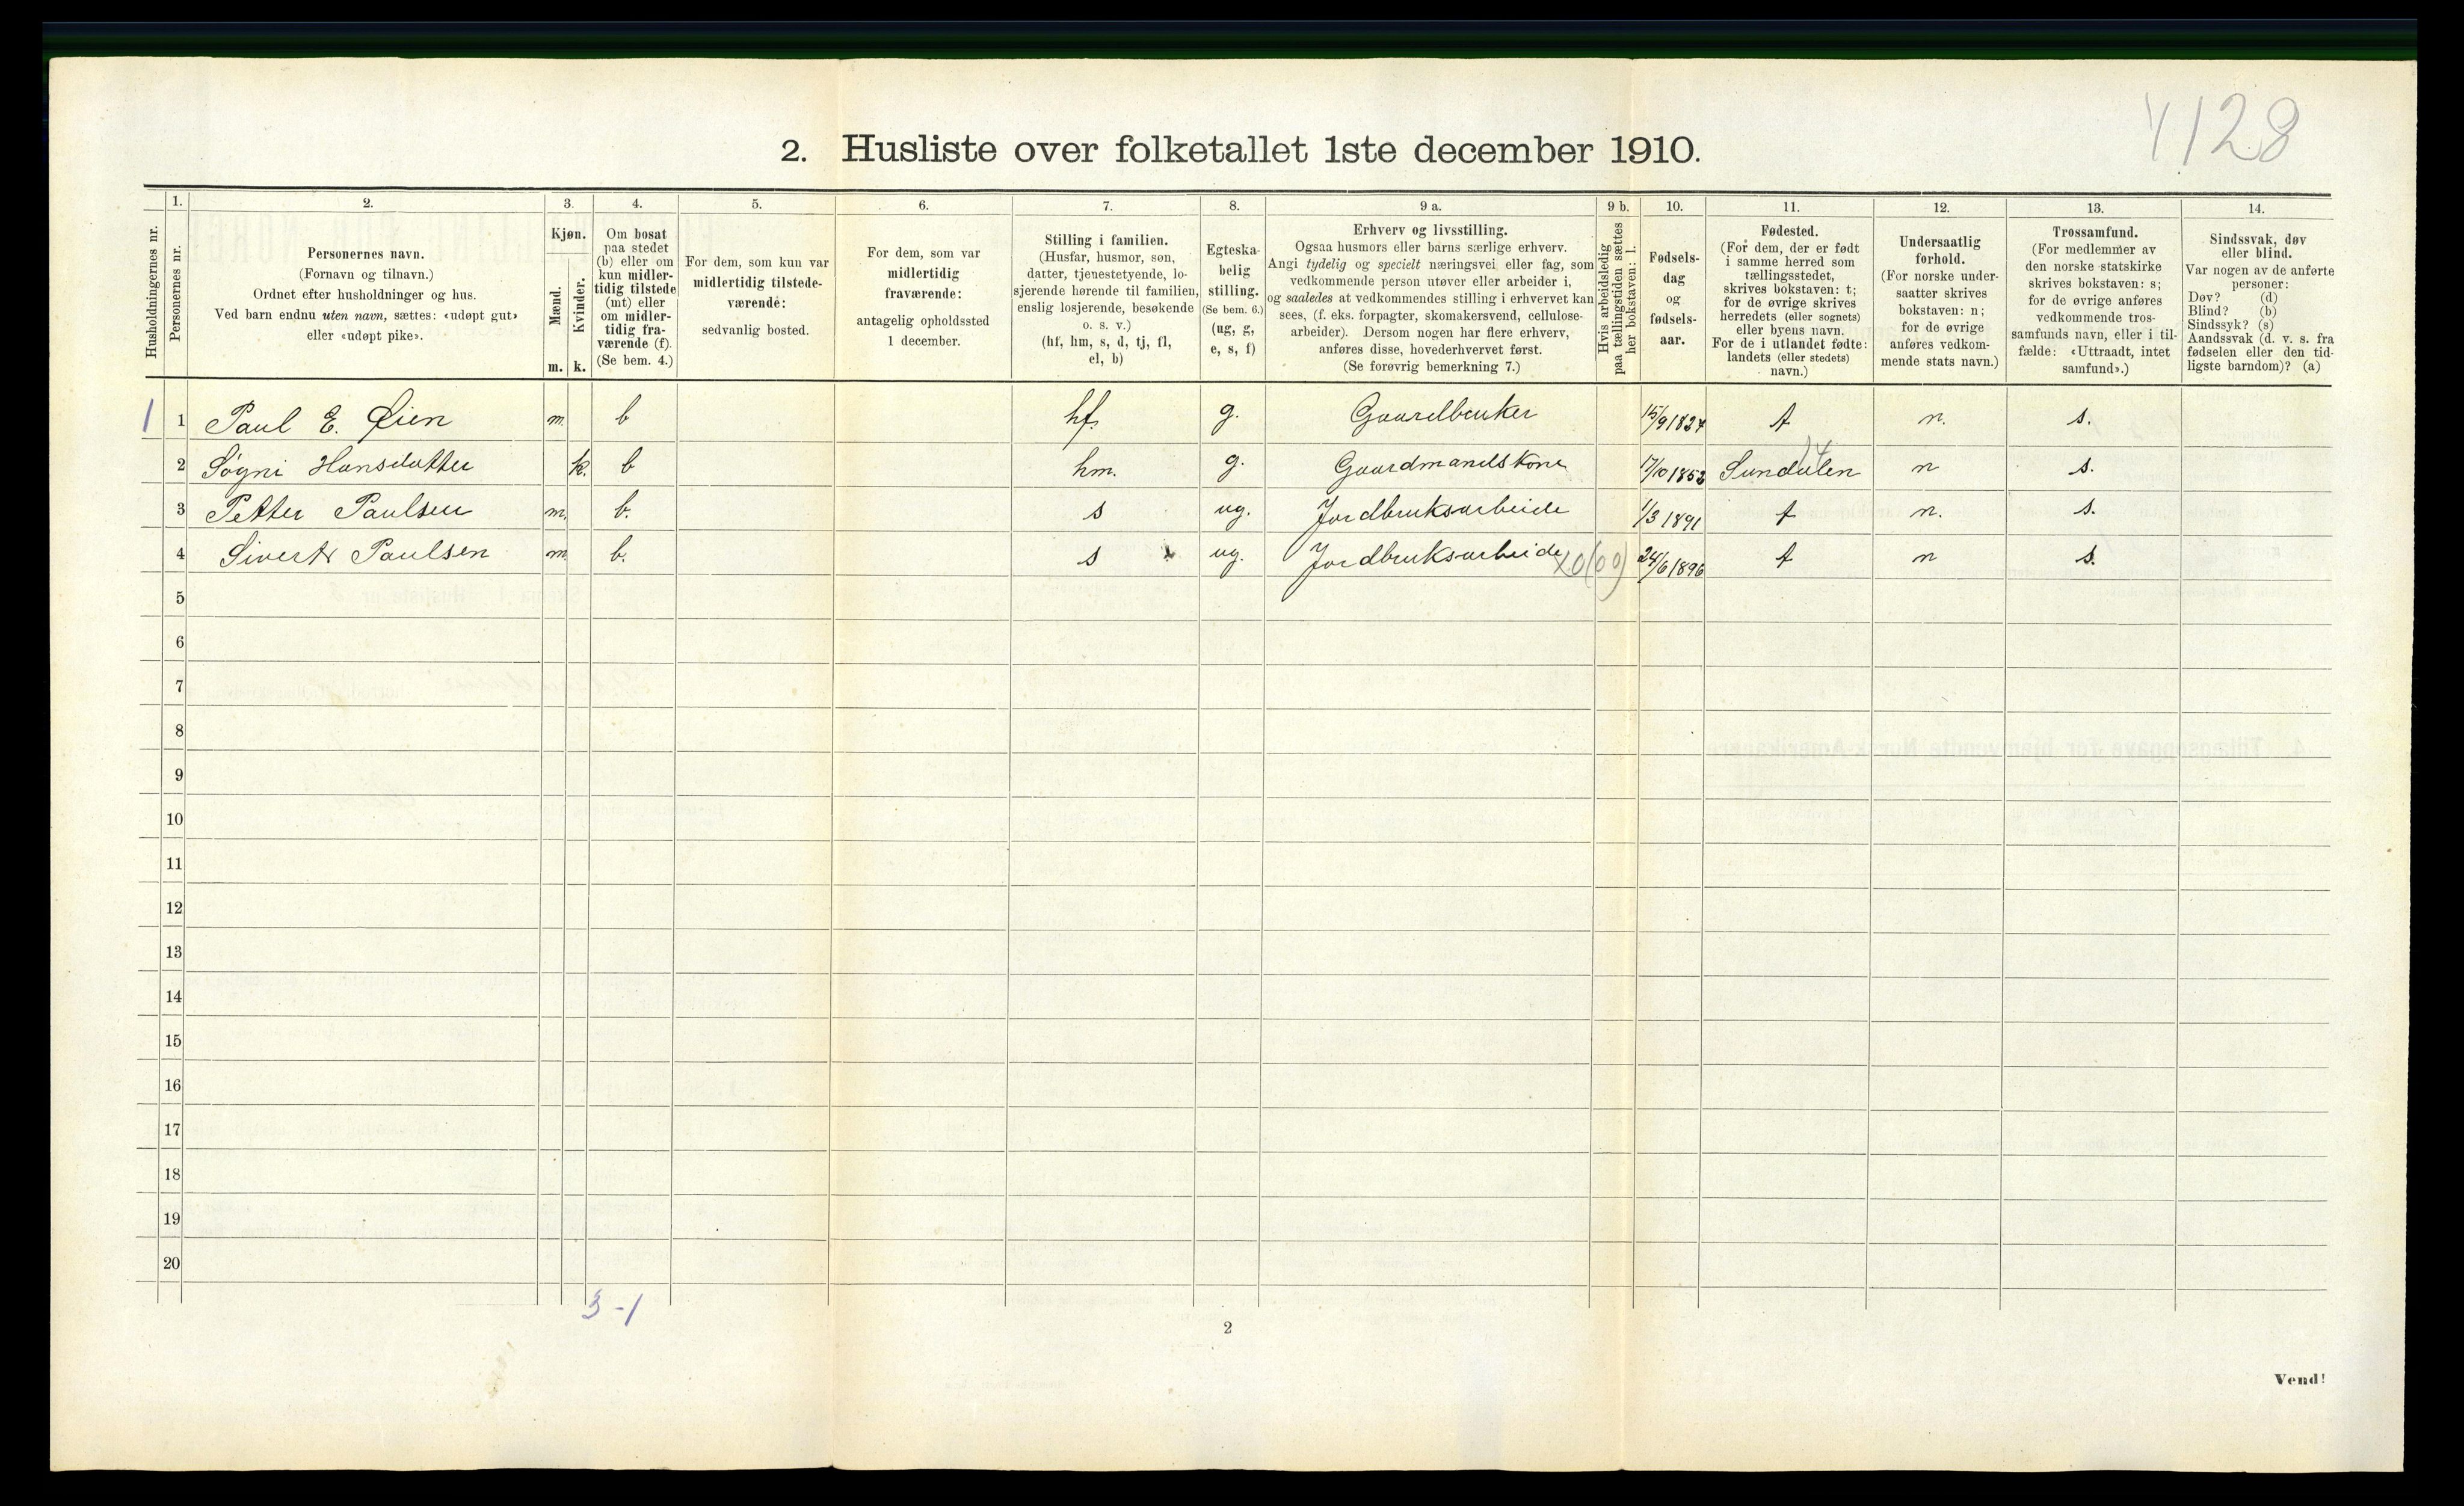 4128
2. Husliste over folketallet 1ste december 1910.
Husholdningernes nr.
1.
Personernes nr.
2.
Personernes navn.
(Fornavn og tilnavn.)
Ordnet efter husholdninger og hus.
Ved barn endnu uten navn, sættes: «udøpt gut»
eller «udøpt pike».
3.
Kjøn.
Mænd.
Kvinder.
m. k.
4.
Om bosat
paa stedet
(b) eller om
kun midler-
tidig tilstede
(mt) eller
om midler-
tidig fra-
værende (f).
(Se bem. 4.)
5.
For dem, som kun var
midlertidig tilstede-
værende:
sedvanlig bosted.
6.
For dem, som var
midlertidig
fraværende:
antagelig opholdssted
1 december.
7.
Stilling i familien.
(Husfar, husmor, søn,
datter, tjenestetyende, lo-
sjerende hørende til familien,
enslig losjerende, besøkende
o. s. v.)
(hf, hm, s, d, tj, fl,
el, b)
8.
Egteska-
belig
stilling.
(Se bem. 6.)
(ug, g,
e, s, f)
9 a.
Erhverv og livsstilling.
Ogsaa husmors eller barns særlige erhverv.
Angi tydelig og specielt næringsvei eller fag, som
vedkommende person utøver eller arbeider i,
og saaledes at vedkommendes stilling i erhvervet kan
sees, (f. eks. forpagter, skomakersvend, cellulose-
arbeider). Dersom nogen har flere erhverv,
anføres disse, hovederhvervet først.
(Se forøvrig bemerkning 7.)
9 b.
Hvis arbeidsledig
paa tællingstiden sættes
her bokstaven: l.
10.
Fødsels-
dag
og
fødsels-
aar.
11.
Fødested.
(For dem, der er født
i samme herred som
tællingsstedet,
skrives bokstaven: t;
for de øvrige skrives
herredets (eller sognets)
eller byens navn.
For de i utlandet fødte:
landets (eller stedets)
navn.)
12.
Undersaatlig
forhold.
(For norske under-
saatter skrives
bokstaven: n;
for de øvrige
anføres vedkom-
mende stats navn.)
13.
Trossamfund.
(For medlemmer av
den norske statskirke
skrives bokstaven: s;
for de øvrige anføres
vedkommende tros-
samfunds navn, eller i til-
fælde: «Uttraadt, intet
samfund».)
14.
Sindssvak, døv
eller blind.
Var nogen av de anførte
personer:
Døv? (d)
Blind? (b)
Sindssyk? (s)
Aandssvak (d. v. s. fra
fødselen eller den tid-
ligste barndom)? (a)
1 1 Paul E. Øien m. b hf. g. Gaardbruker 15/9 1827 t n. s.
2 Søgni Hansdatter k. b hm. g. Gaardmandskone 17/10 1852 Sundalen n s.
3 Petter Paulsen m. b. s ug. Jordbruksarbeide 1/3 1891 t n. s.
4 Sivert Paulsen m. b. s ug. Jordbruksarbeide 24/6 1896 t n s.
5
6
7
8
9
10
11
12
13
14
15
16
17
18
19
20
3-1
2
Vend!